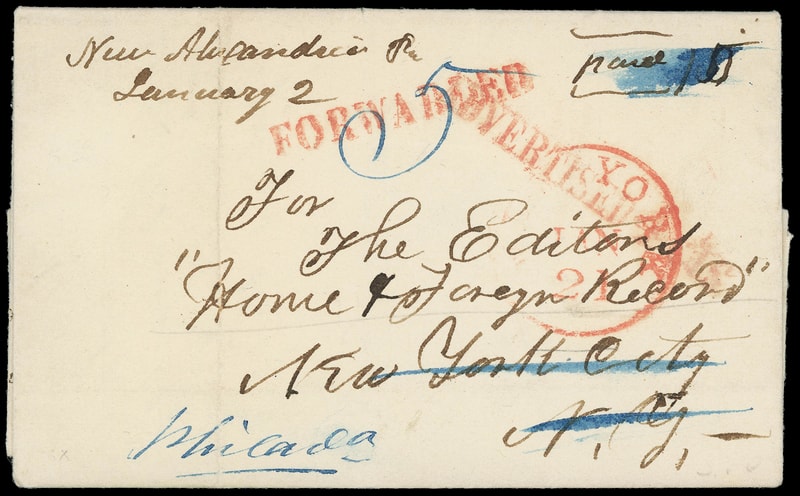 New Alexandria Pa
January 2
paid
5
FORWARDED
ADVERTISED
YORK
JAN
21
For
The Editors
"Home & Foreign Record"
New York City
N. Y,
Philada